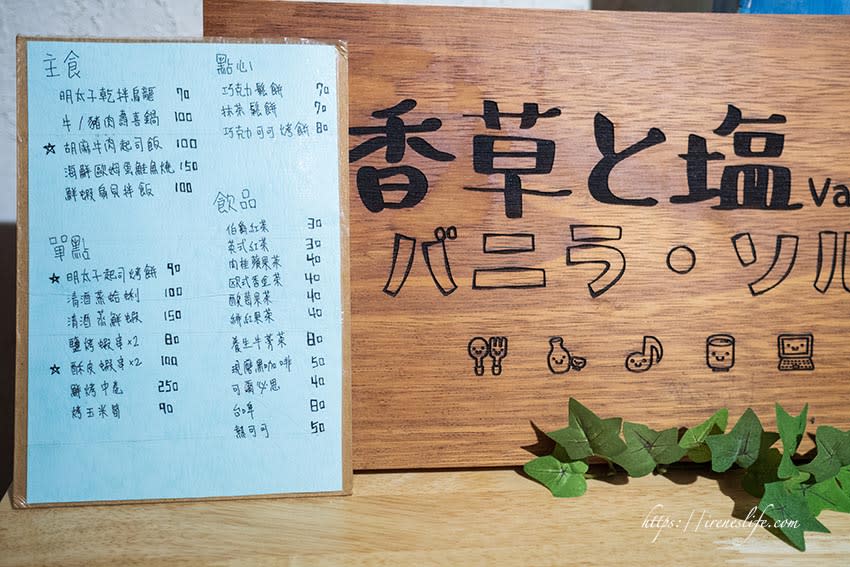 主食
明太子乾拌烏龍 70
牛/豬肉壽喜鍋 100
☆ 胡麻牛肉起司飯 100
海鮮歐姆蛋鮭魚燒 150
鮮蝦扇貝拌飯 100
單點
☆ 明太子起司烤餅 90
清酒蒸蛤蜊 100
清酒蒸鮮蝦 150
鹽烤蝦串×2 80
☆ 酥皮蝦串×2 100
鮮烤中卷 250
烤玉米筍 90
點心
巧克力鬆餅 70
抹茶鬆餅 70
巧克力可可烤餅 80
飲品
伯爵紅茶 30
英式紅茶 30
肉桂蘋果茶 40
歐式香金茶 40
酸莓果茶 40
繽紅果茶 40
養生牛蒡茶 80
現磨黑咖啡 50
可爾必思 40
台啤 80
熱可可 50
香草と塩 Va
バニラ・ソル
https://ireneslife.com